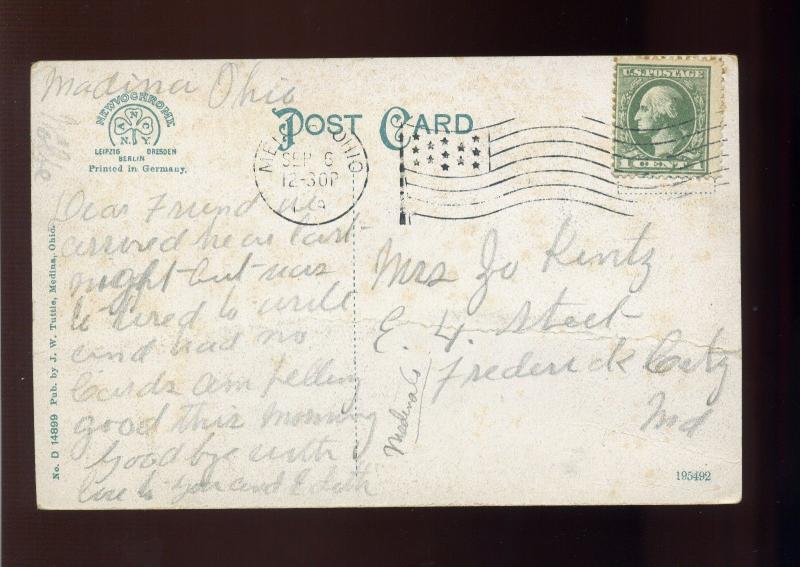 Madina Ohio
NEWVOCHROME
A N C
N.Y.
LEIPZIG DRESDEN
BERLIN
Printed in Germany.
POST CARD
OHIO
SEP 6
12-30P
U.S. POSTAGE
1 CENT 1
Dear Friend we
arrived hear last
night but was
to tired to write
and had no
Cards am felling
good this morning
Good bye with
love to you and Edith
Mrs Jo Kintz
E. 4. Street
Frederick City
Md
No. D 14899 Pub. by J. W. Tuttle, Medina, Ohio.
195492